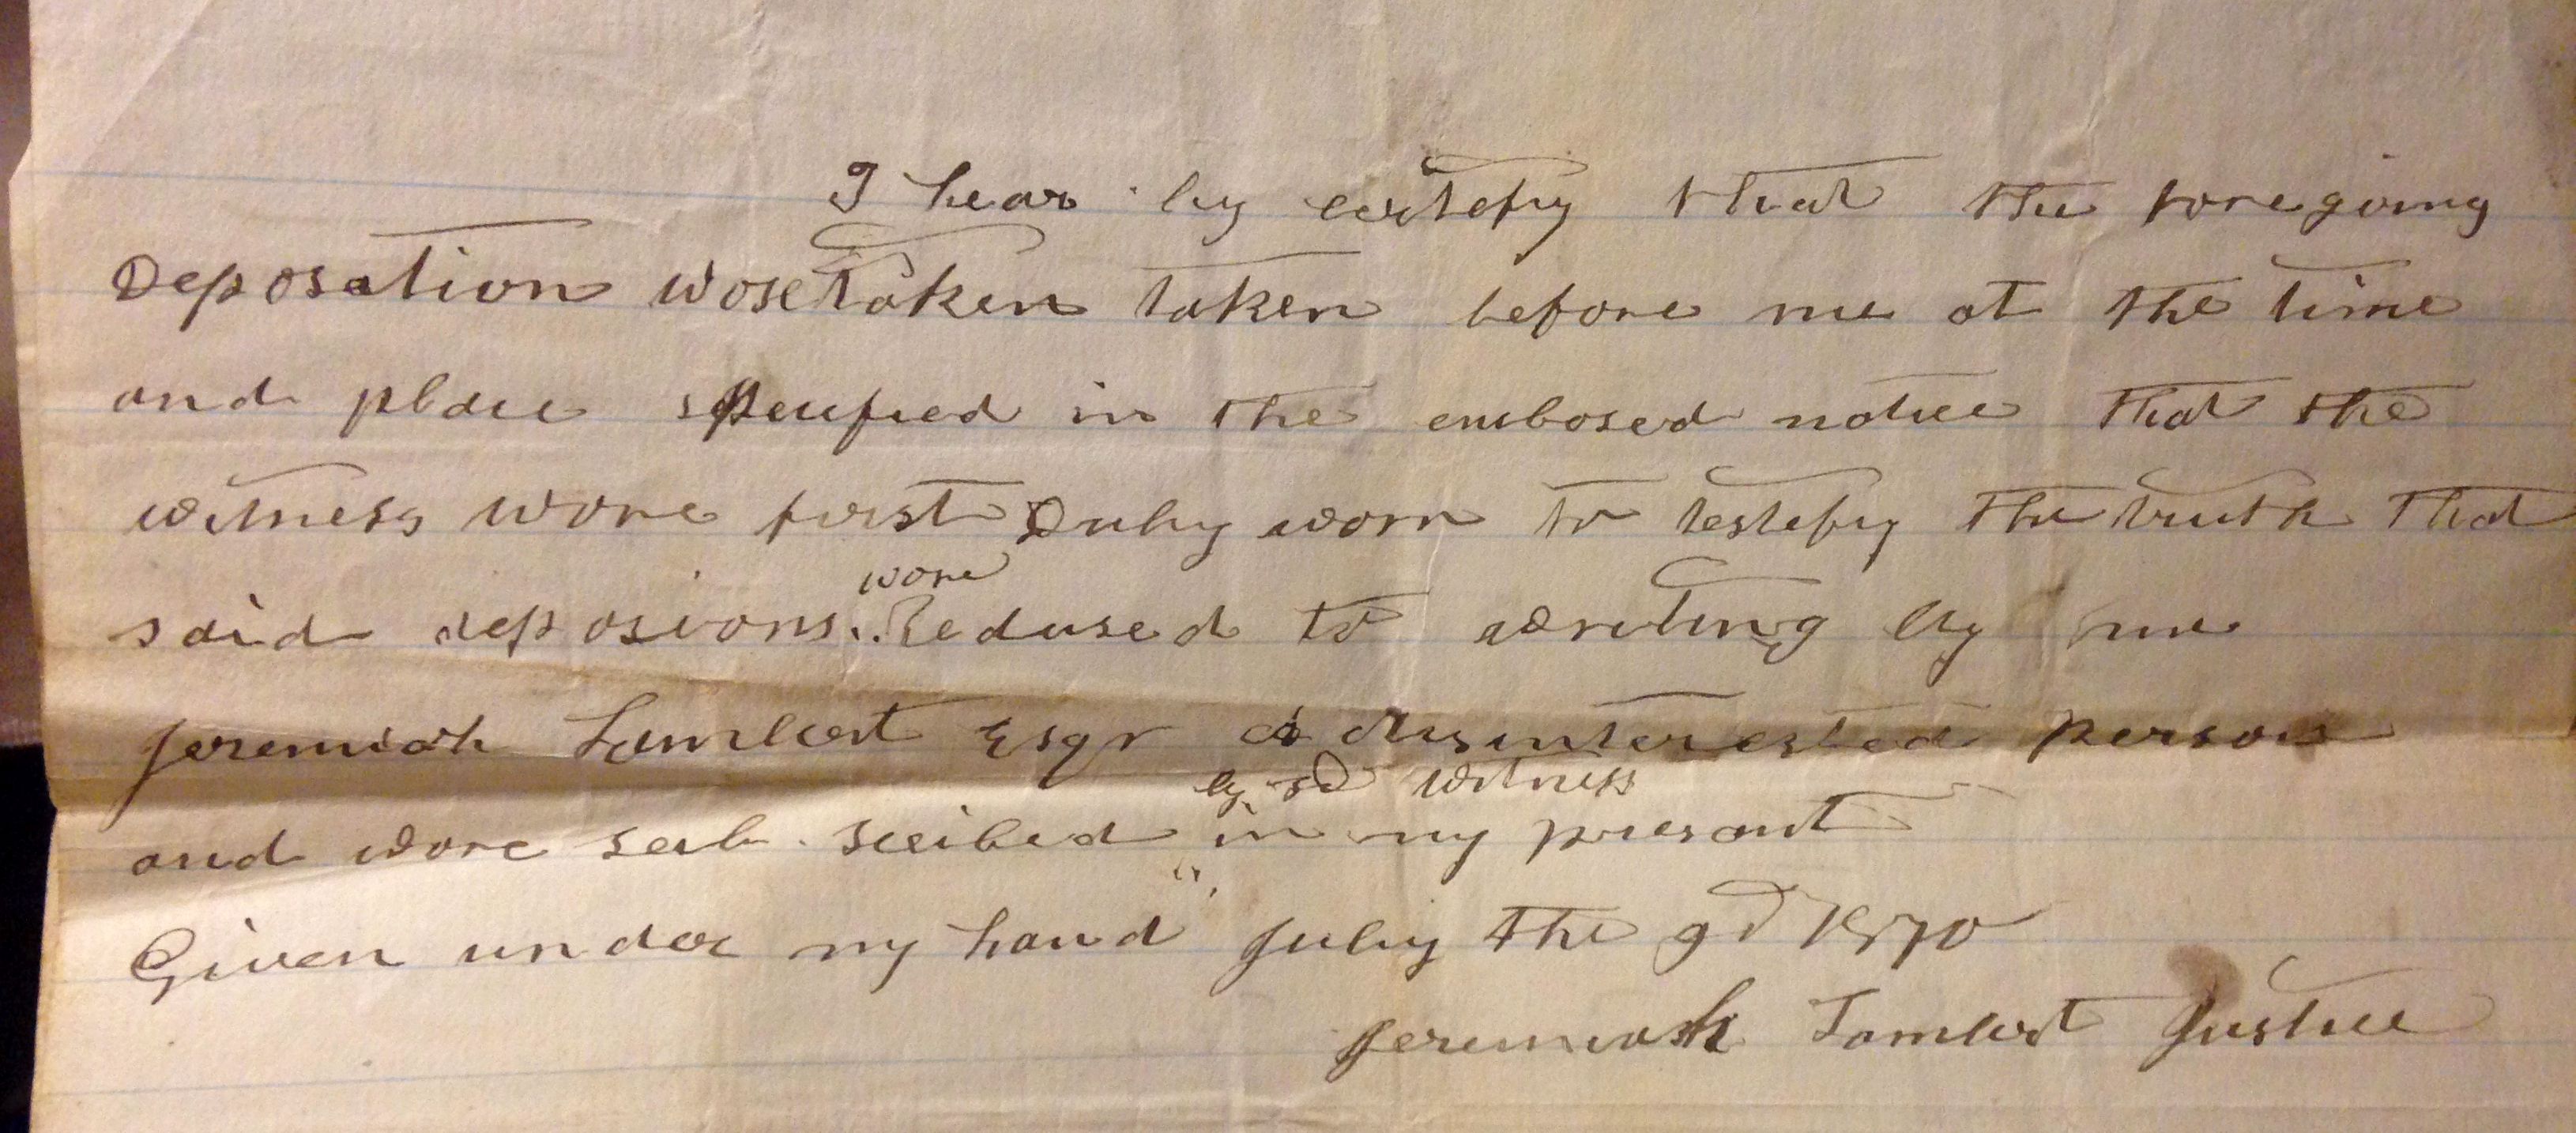 I hear by certefy that the foregoing
Deposation wose taken taken before me at the time
and place specified in the enclosed notice that the
witness wore first Duly worn to testefy the truth that
wore
said deposions Redused to writing by me
Jeremiah Lambert Esqr a disinterested person
by sd witness
and wore sub scribed in my presant
Given under my hand July the 9d 1870
Jeremiah Lambert Justice